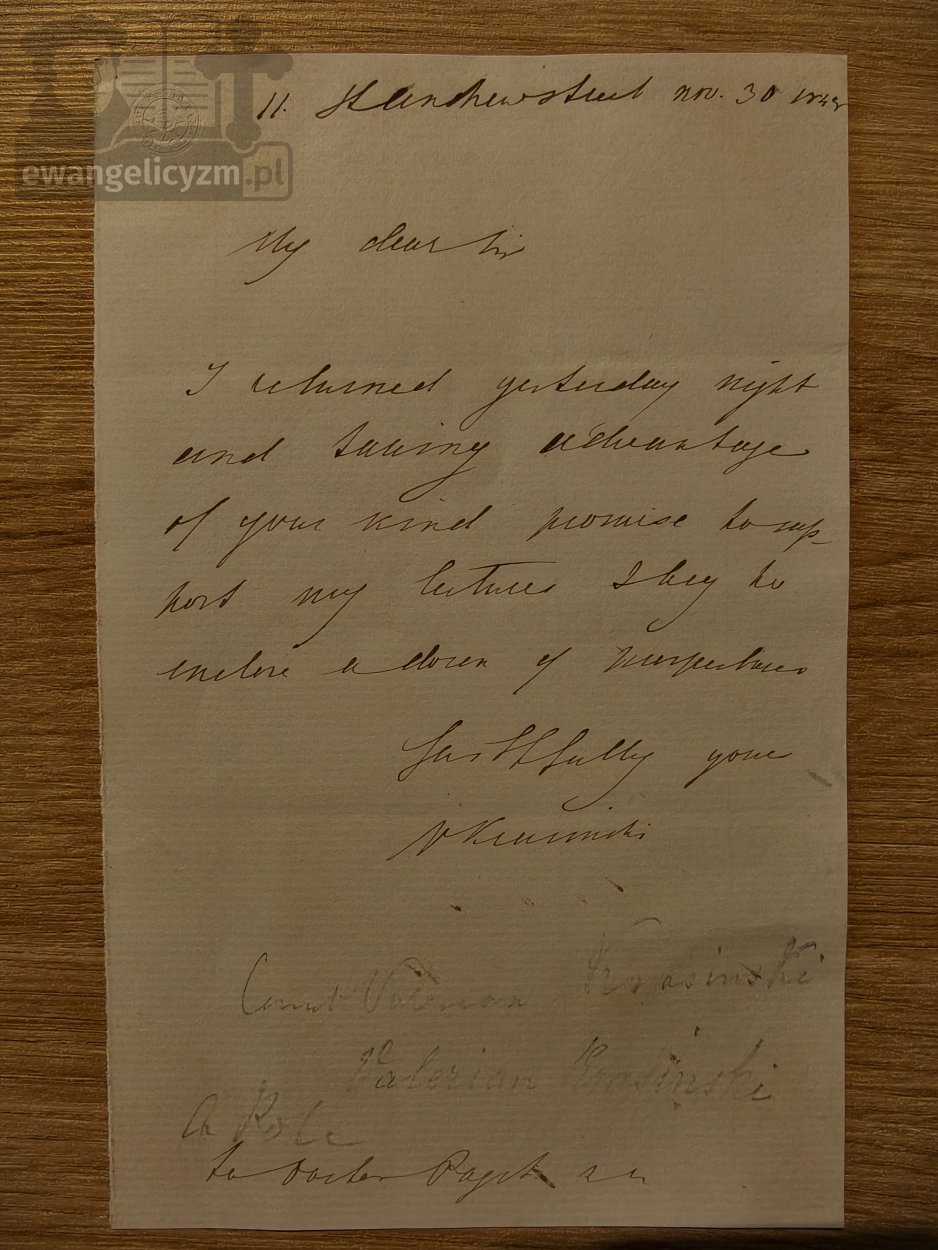 ewangelicyzm.pl
11. St Andrew street nov. 30
My dear Sir
I returned yesterday night
and taking advantage
of your kind promise to sup-
port my lectures I beg to
enclose a dozen of prospectuses
faithfully yours
V Krasinski
Count Valerian Krasinski
Valerian Krasinski
A Pole
to Doctor Paget